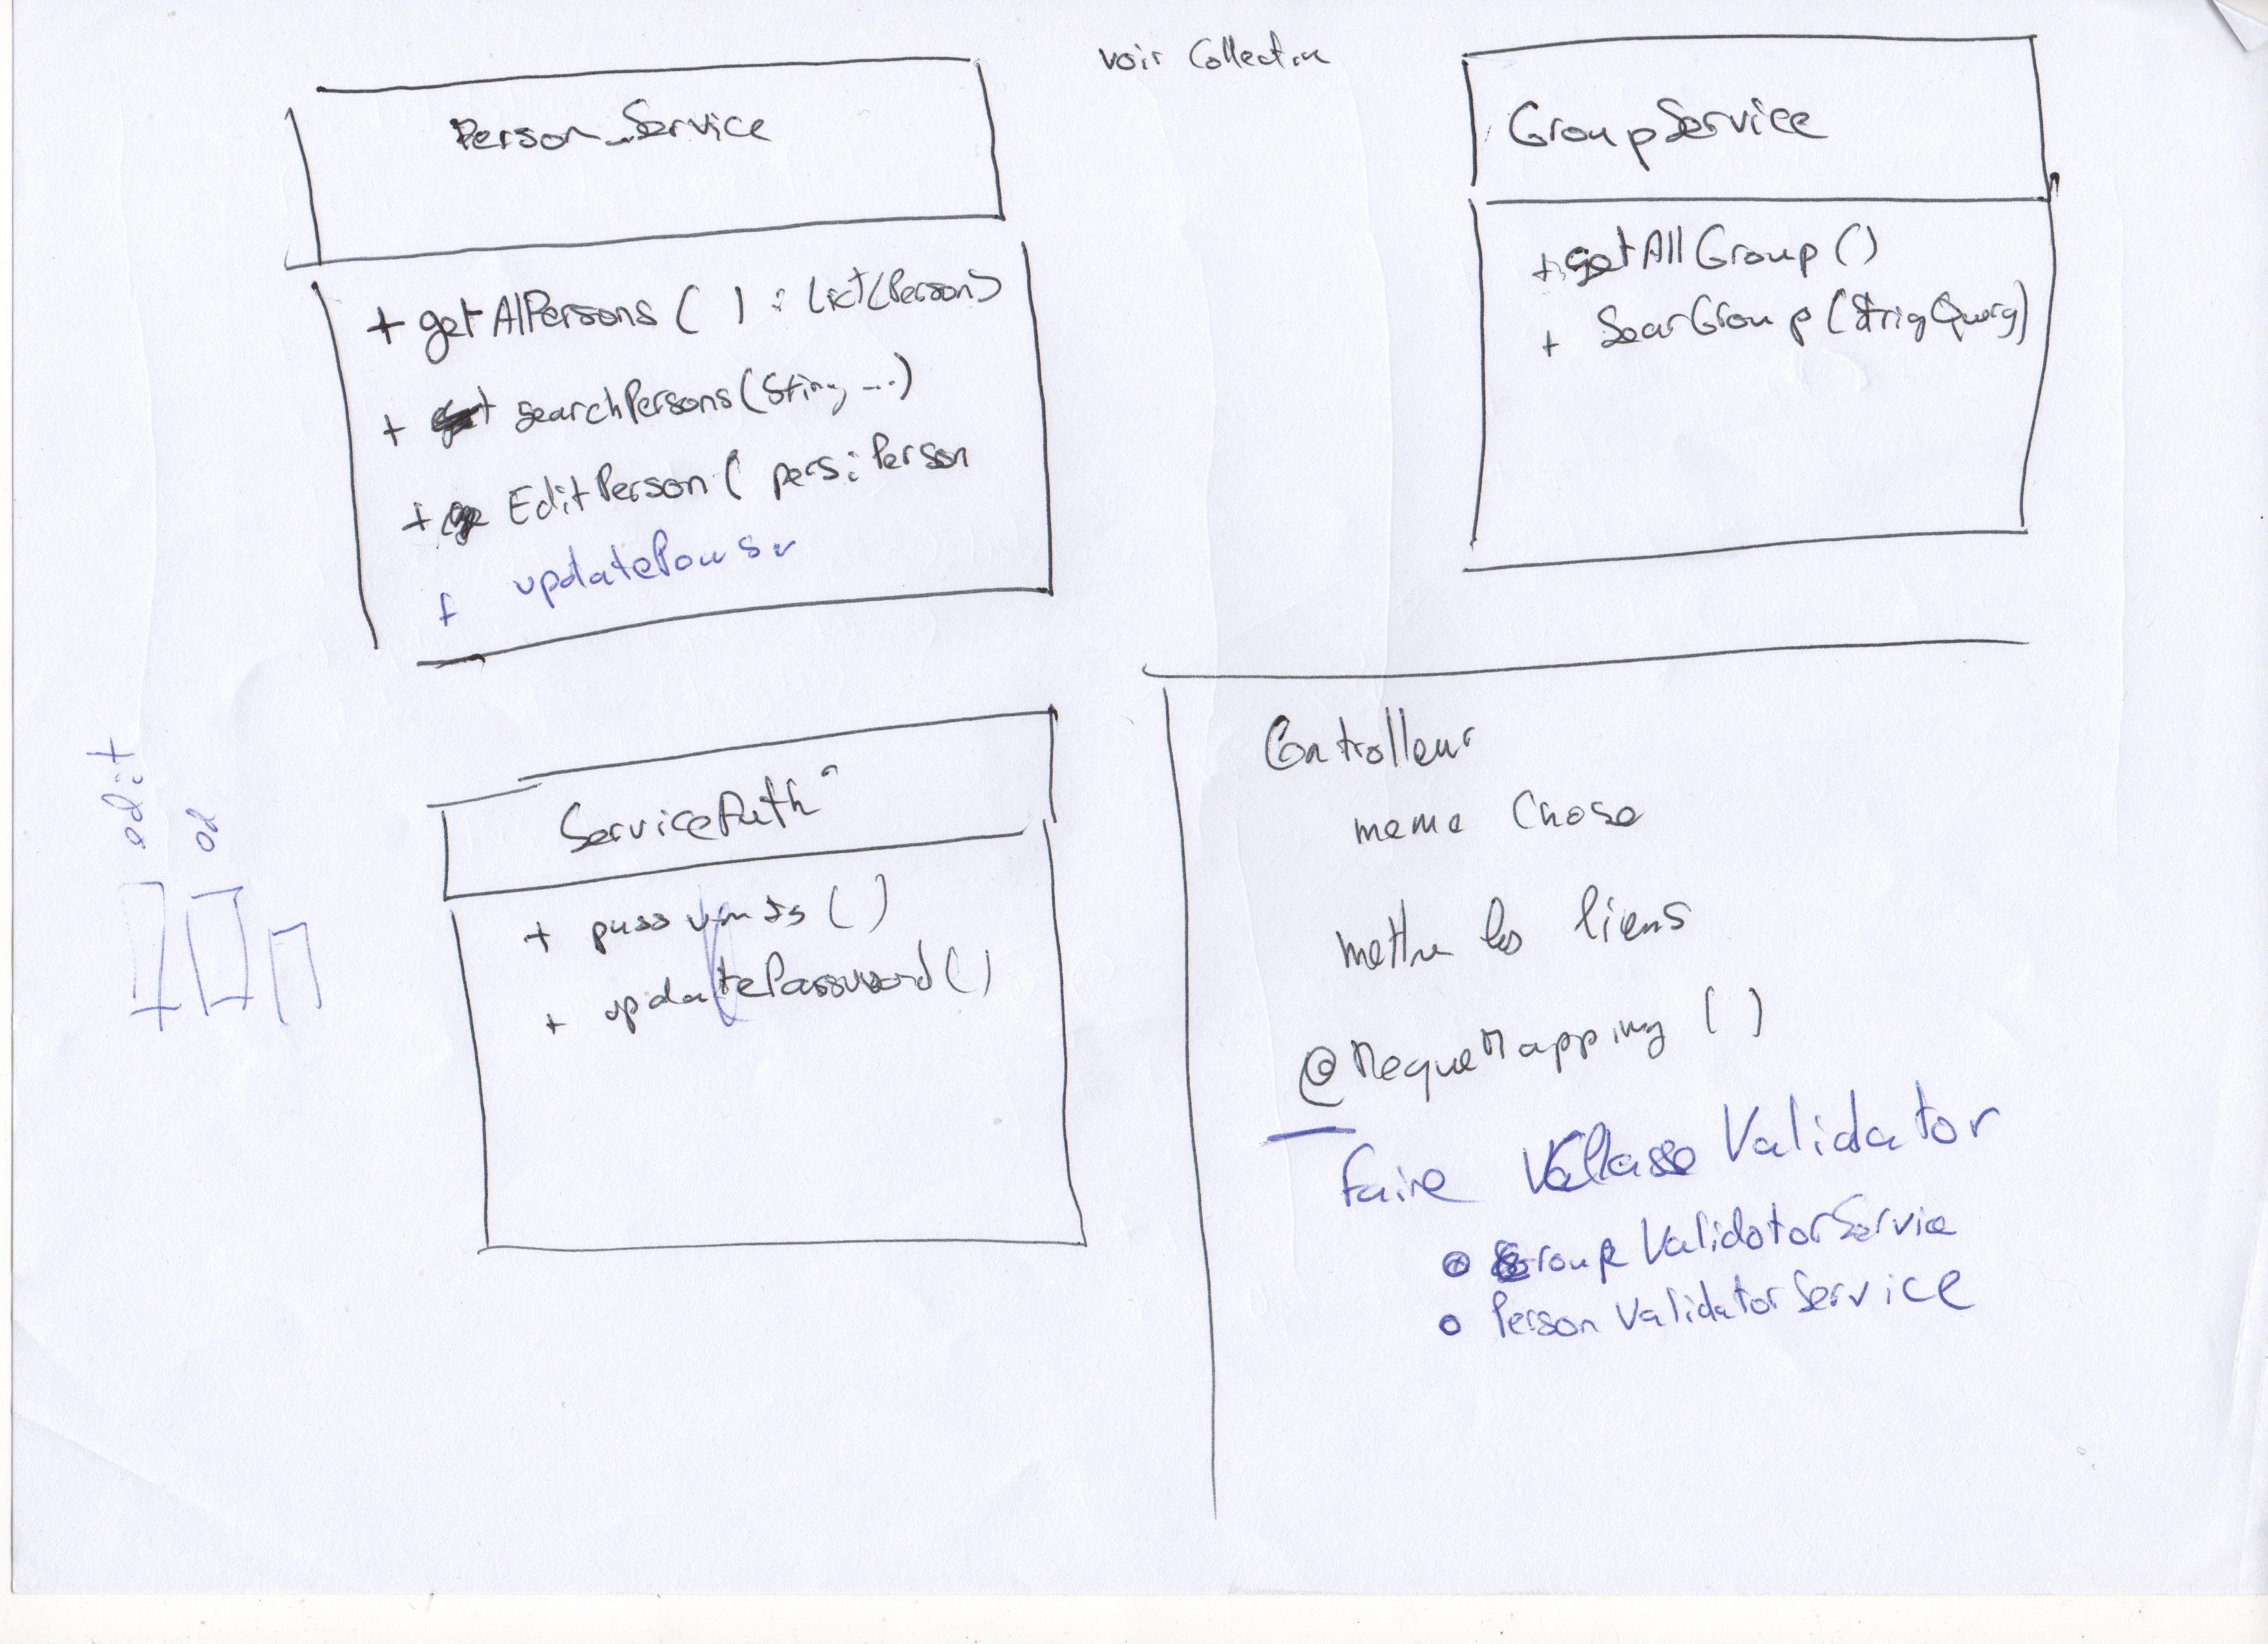 voir Collection
Person_Service
+ getAllPersons ( ) : List(Person)
+ searchPersons (String ...)
+ EditPerson ( pers : Person
+
GroupService
+ getAllGroup ()
+ SearGroup (StringQuery)
edit
ed
ServiceAuth
+ ()
+ updatePassword ()
Controlleur
meme Chose
mettre les liens
@RequeMapping ( )
faire Classe Validator
Group ValidatorService
Person ValidatorService